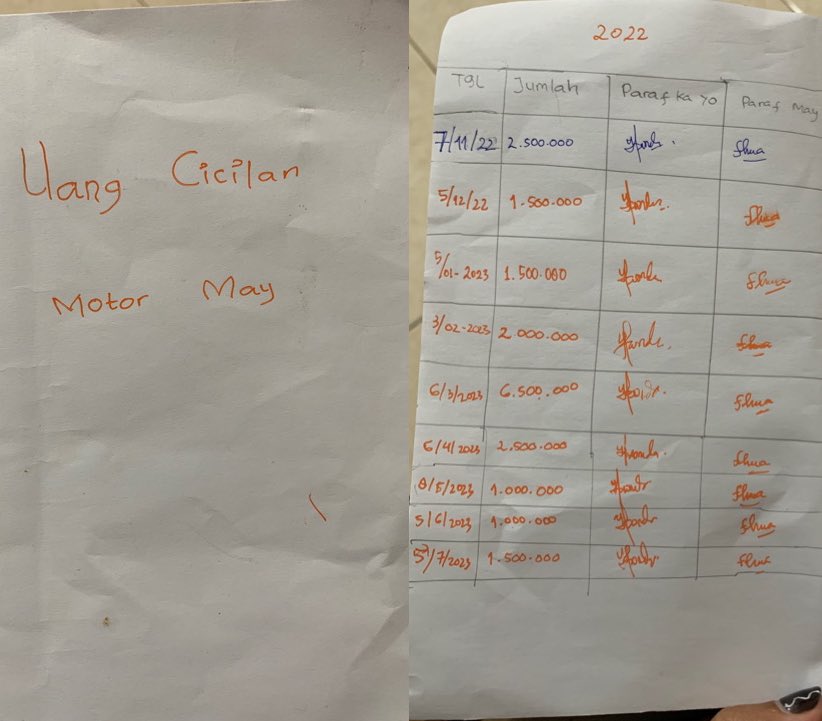 Uang Cicilan
Motor May
2022
TGL Jumlah Paraf Ka Yo Paraf May
7/11/22 2.500.000
5/12/22 1.500.000
5/01-2023 1.500.000
3/02-2023 2.000.000
6/3/2023 6.500.000
6/4/2023 2.500.000
8/5/2023 1.000.000
5/6/2023 1.000.000
5/7/2023 1.500.000